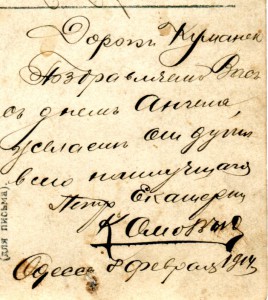 Дорогой Куманек
Поздравляем Васъ
съ днемъ Ангела,
желаемъ отъ души
всего наилучшаго
Петр Екатерин
Одесса 8 февраля 1917
(для письма).